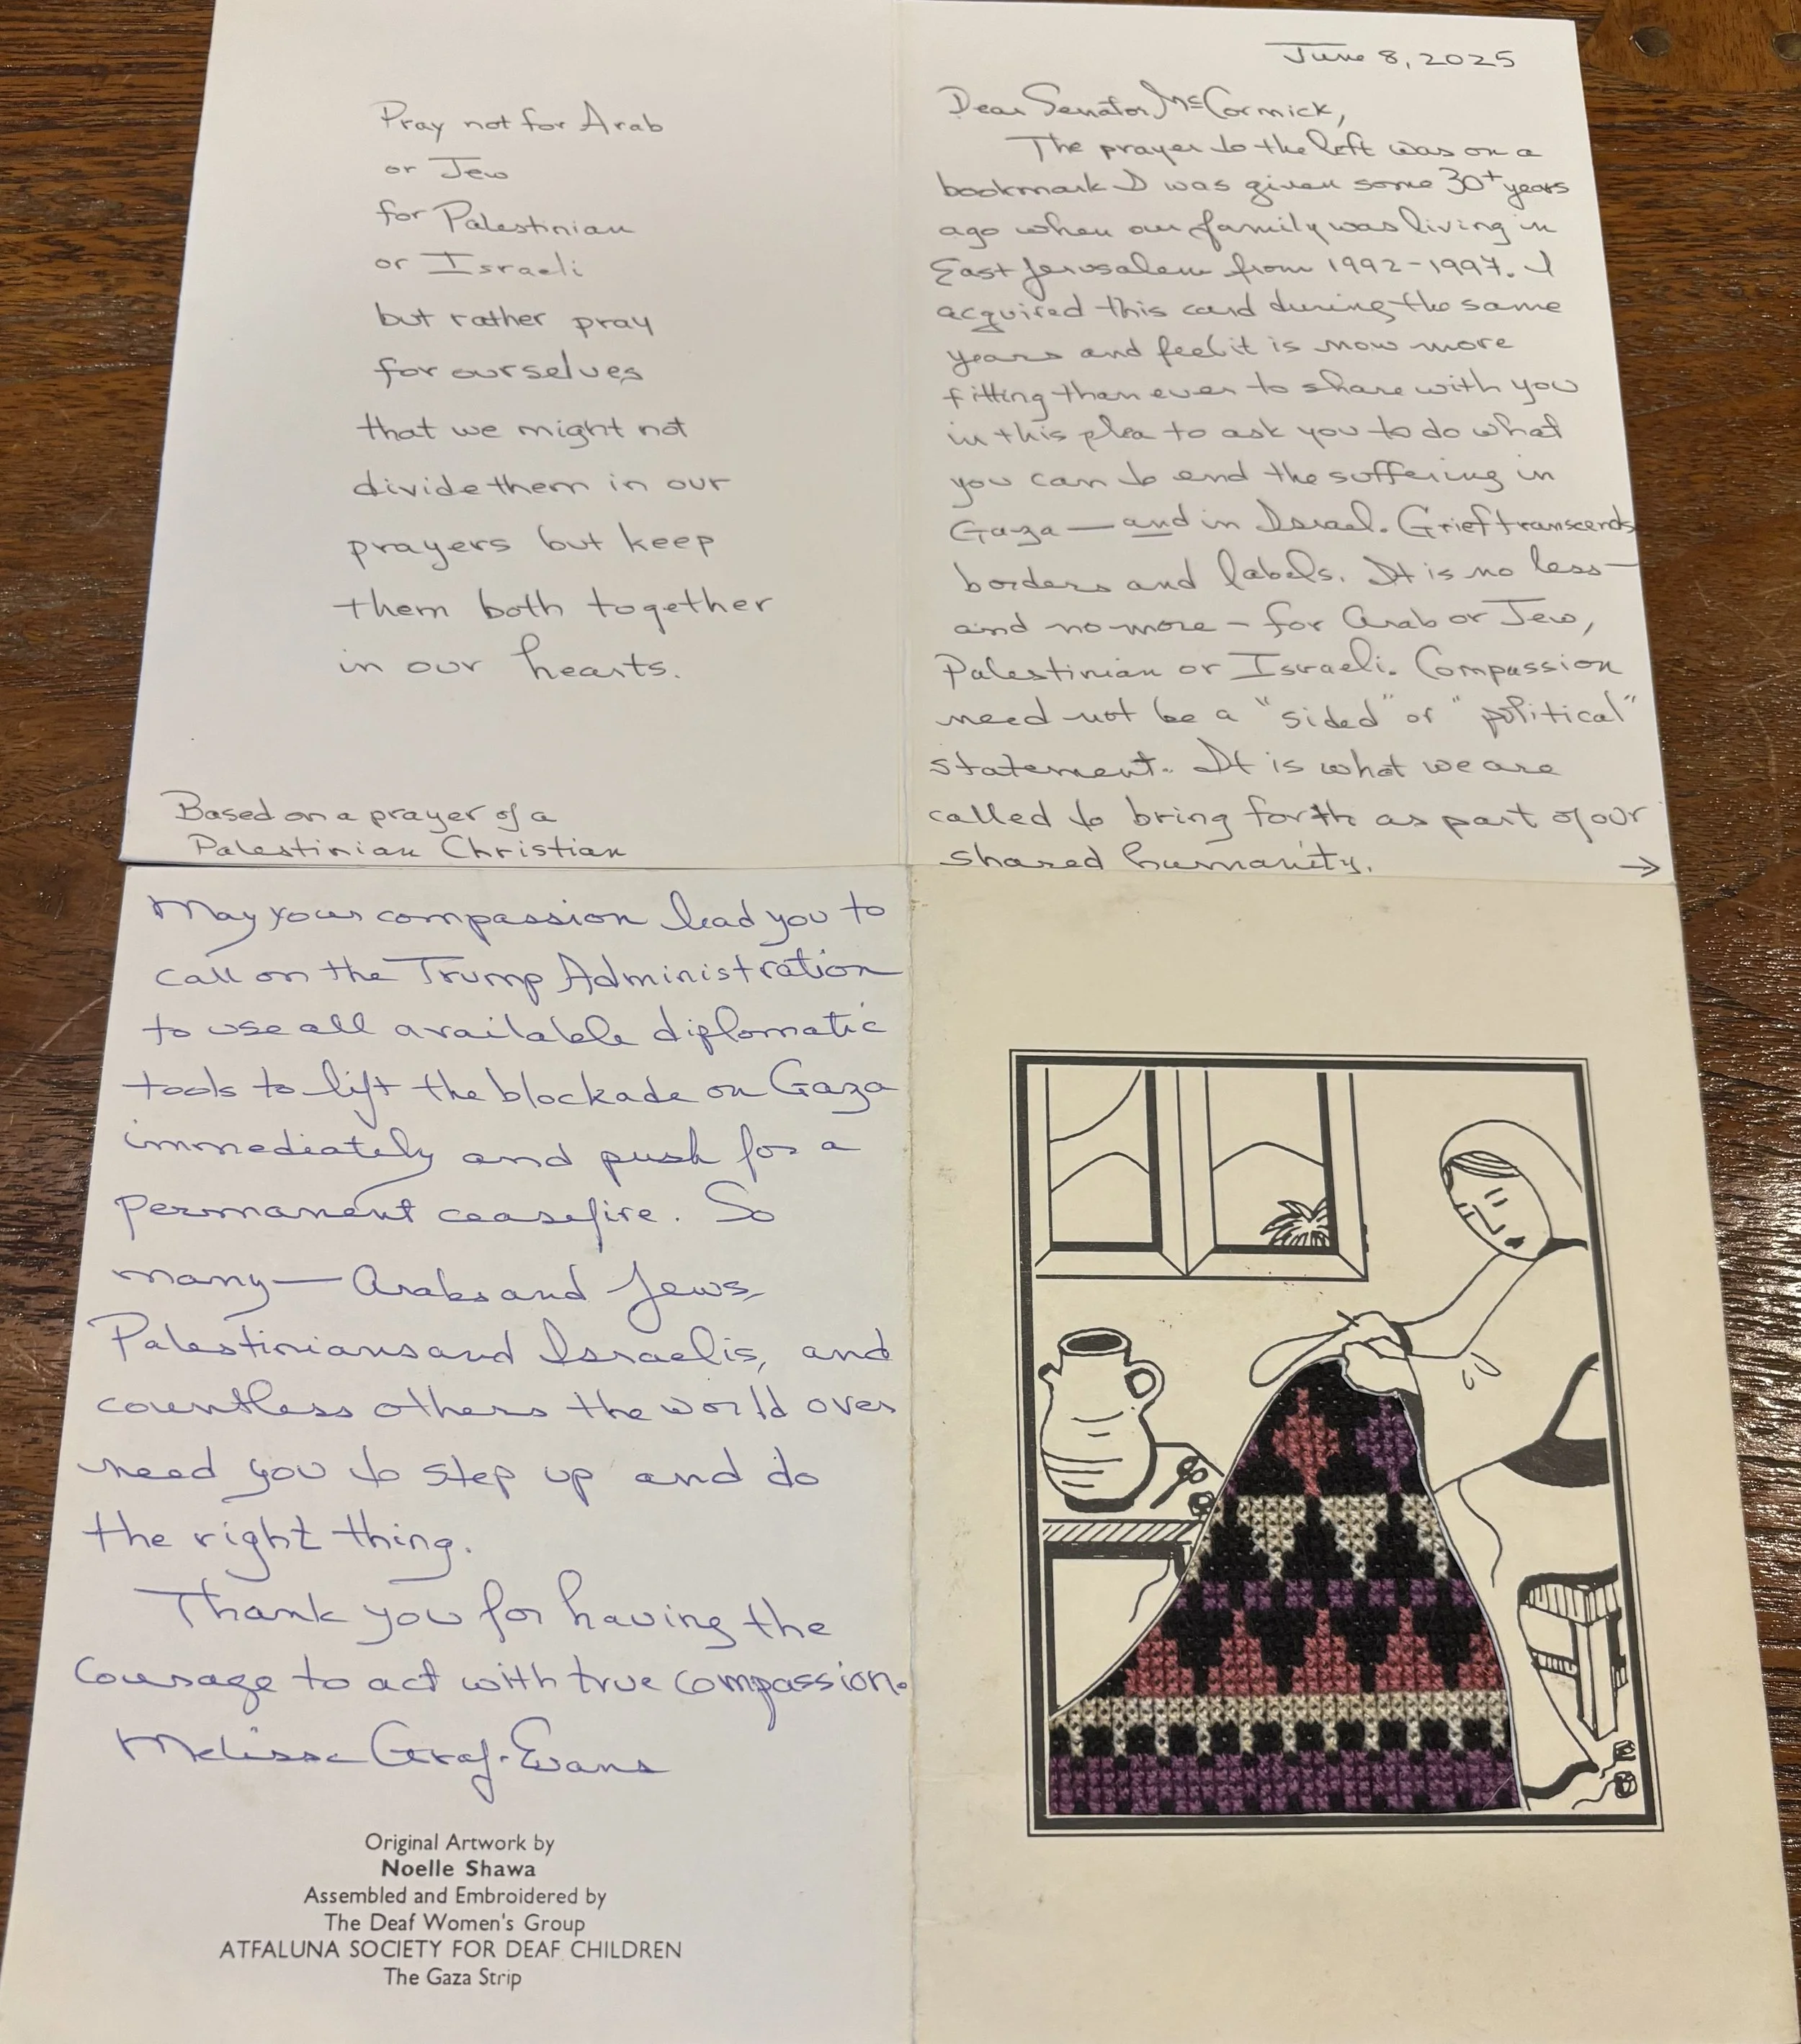 Pray not for Arab
or Jew
for Palestinian
or Israeli
but rather pray
for ourselves
that we might not
divide them in our
prayers but keep
them both together
in our hearts.
Based on a prayer of a
Palestinian Christian
June 8, 2025
Dear Senator McCormick,
The prayer to the left was on a
bookmark I was given some 30+ years
ago when our family was living in
East Jerusalem from 1992-1997. I
acquired this card during the same
years and feel it is now more
fitting than ever to share with you
in this plea to ask you to do what
you can to end the suffering in
Gaza — and in Israel. Grief transcends
borders and labels. It is no less —
and no more - for Arab or Jew,
Palestinian or Israeli. Compassion
need not be a "sided" or "political"
statement. It is what we are
called to bring forth as part of our
shared humanity. →
May your compassion lead you to
call on the Trump Administration
to use all available diplomatic
tools to lift the blockade on Gaza
immediately and push for a
permanent ceasefire. So
many — Arabs and Jews,
Palestinians and Israelis, and
countless others the world over
need you to step up and do
the right thing.
Thank you for having the
courage to act with true compassion.
Melissa Graf-Evans
Original Artwork by
Noelle Shawa
Assembled and Embroidered by
The Deaf Women's Group
ATFALUNA SOCIETY FOR DEAF CHILDREN
The Gaza Strip